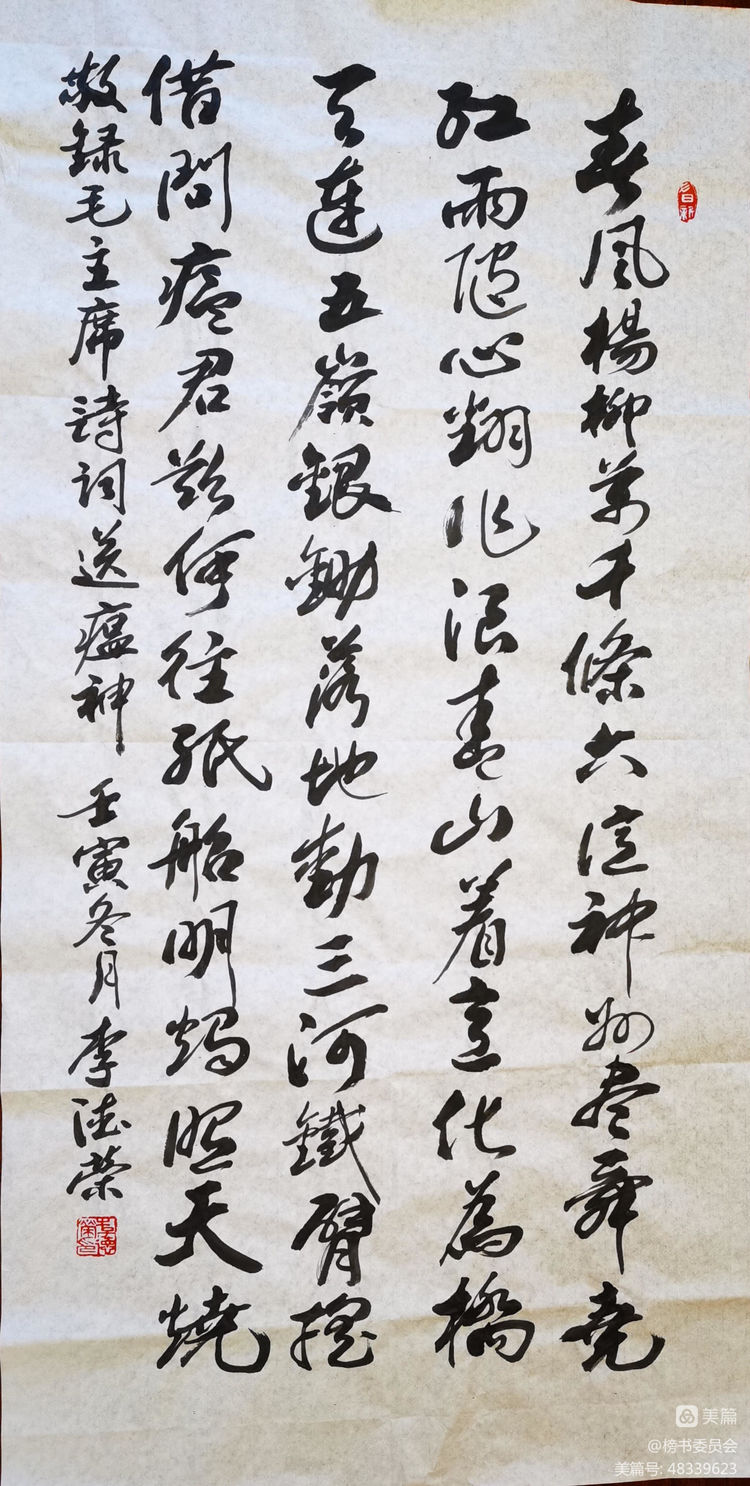 春風楊柳萬千條六億神州盡舜堯
紅雨随心翻作浪青山着意化為橋
天連五嶺銀鋤落地動三河鐵臂摇
借問瘟君欲何往紙船明燭照天燒
敬録毛主席詩詞送瘟神 壬寅冬月 李德榮
美篇
@榜书委员会
美篇号: 48339623